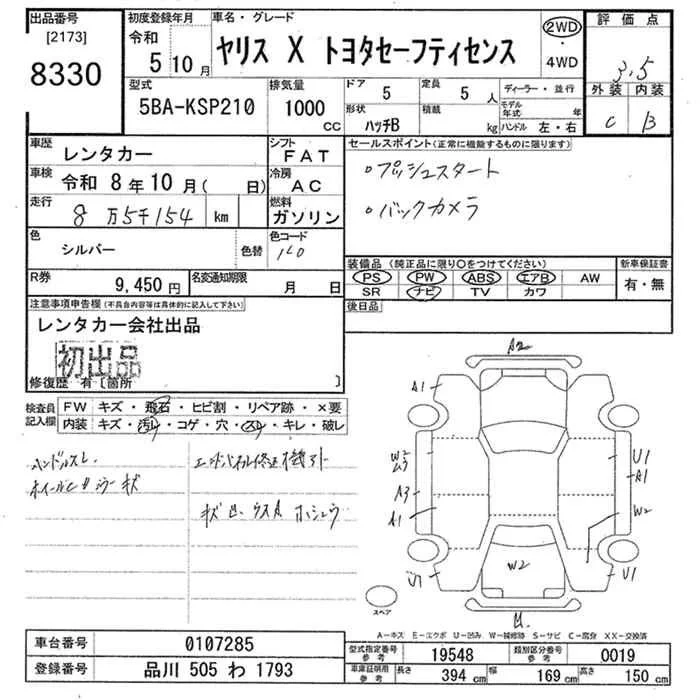 出品番号
[2173]
8330
初度登録年月
令和
5 10 月
車名・グレード
ヤリス X トヨタセーフティセンス
2WD
・
4WD
評 価 点
3.5
外装 内装
C B
型式
5BA-KSP210
排気量
1000
CC
ドア
5
定員
5 人
形状
ハッチB
積載
kg
ディーラー・並行
モデル年式 年
ハンドル 左・右
車歴
レンタカー
シフト
F A T
車検
令和 8 年 10 月 ( 日)
冷房
A C
走行
8 万 5千 154 km
燃料
ガソリン
色
シルバー
色替
色コード
1L0
R券
9,450 円
名変通知期限
月 日
セールスポイント(正常に機能するものに限ります)
・プッシュスタート
・バックカメラ
装備品 (純正品に限り○をつけてください)
PS PW ABS エアB AW
SR ナビ TV カワ
新車保証書
有・無
後日品
注意事項申告欄(不具合内容等は具体的に記入して下さい)
レンタカー会社出品
初出品
修復歴 有〔箇所 〕
検査員
記入欄
FW キズ・飛石・ヒビ割・リペア跡・×要
内装 キズ・汚レ・コゲ・穴・スレ・キレ・破レ
ハンドルスレ
A2
A1
W2
A3
A1
U1
U1
A1
W2
U1
W2
スペア
A-キズ E-エクボ U-凹み W-補修跡 S-サビ C-腐食 XX-交換済
車台番号
0107285
登録番号
品川 505 わ 1793
型式指定番号
参考
19548
類別区分番号
参考
0019
車庫証明用
参考
長さ
394 cm
幅
169 cm
高さ
150 cm